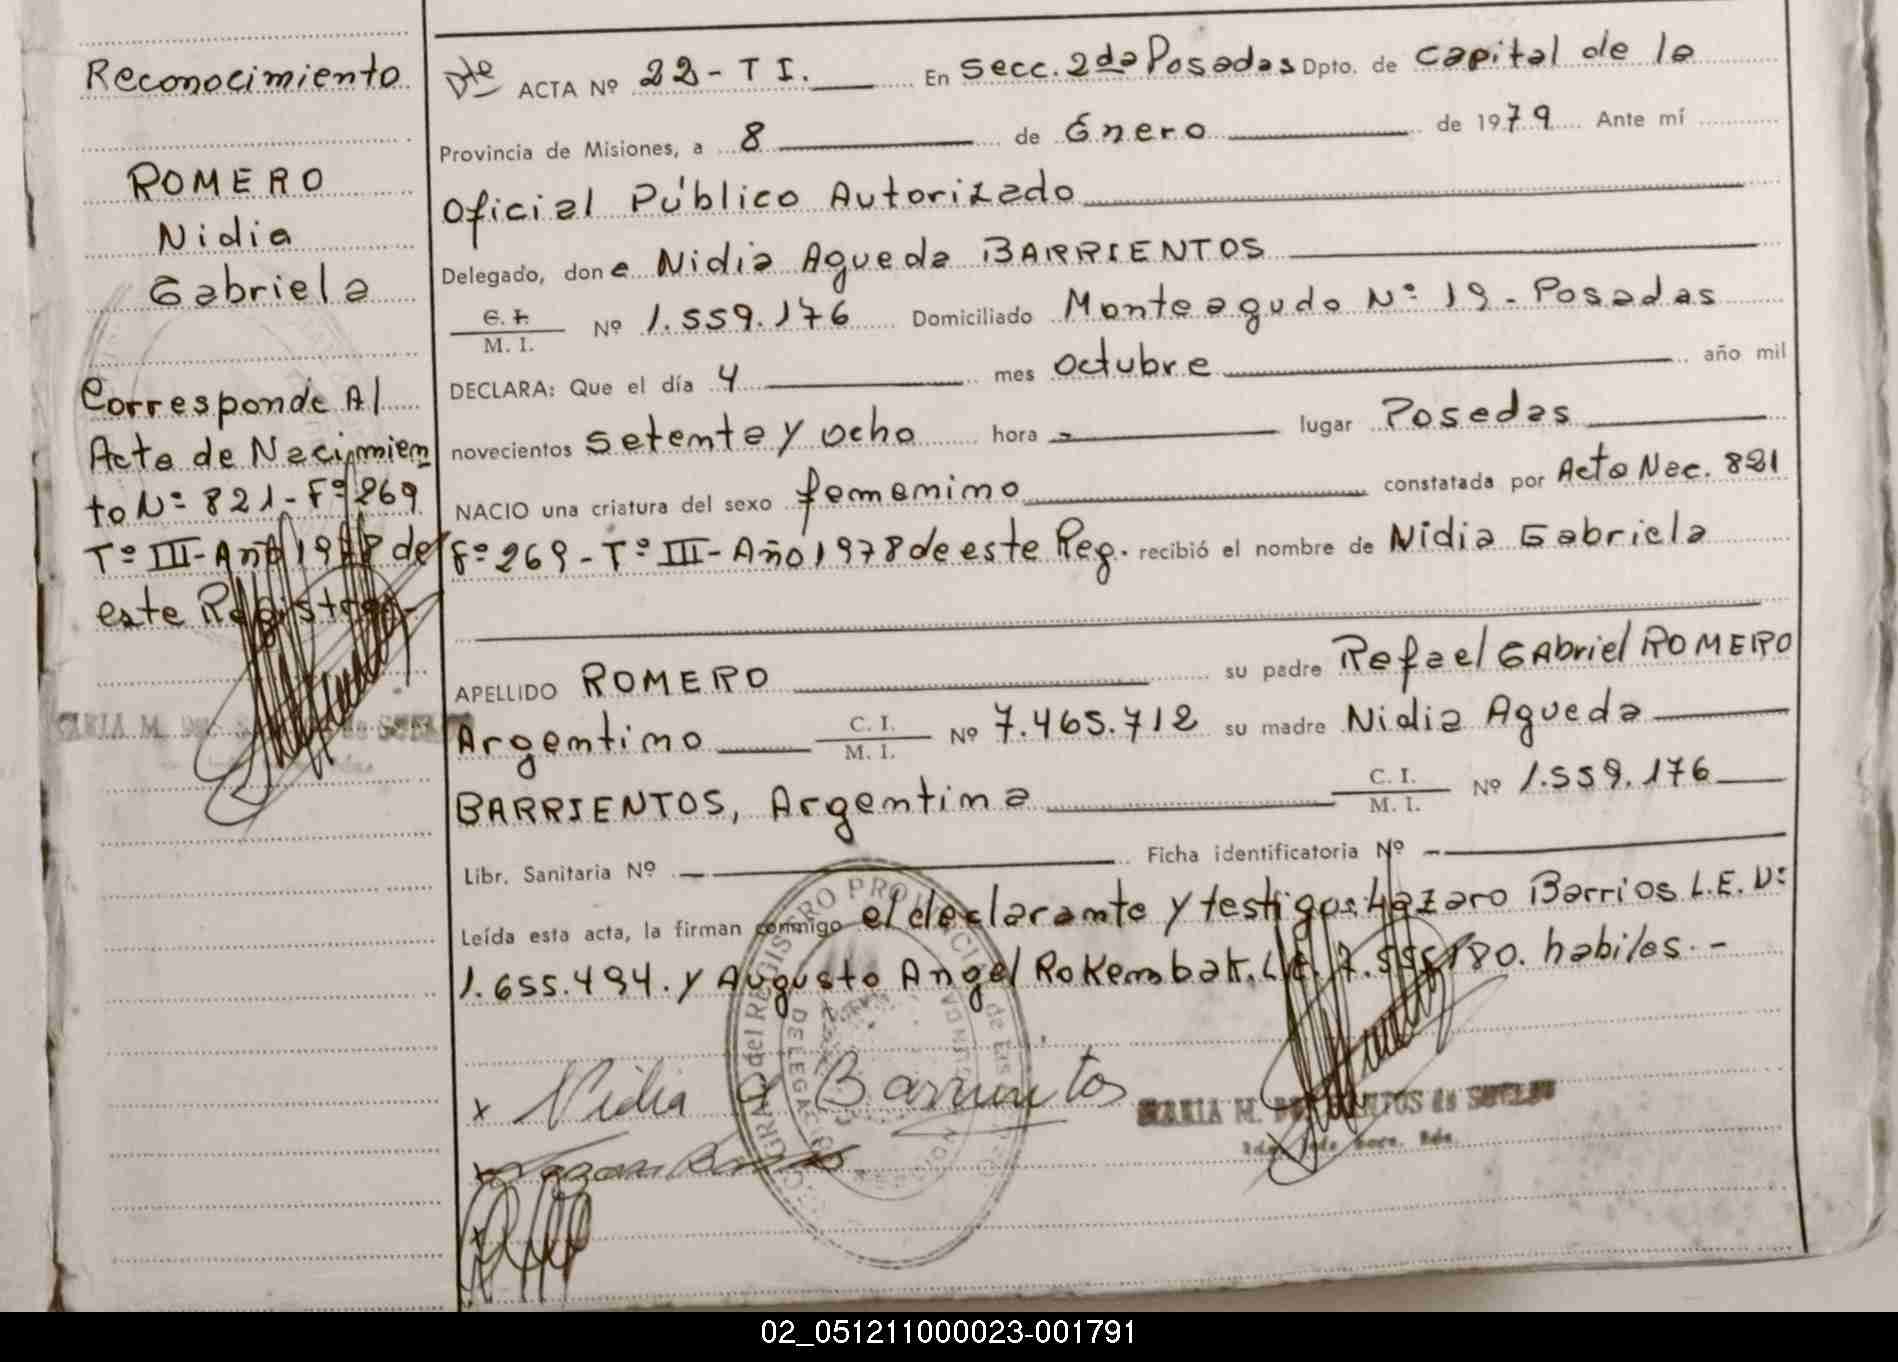 Reconocimiento
ROMERO
Nidia
Gabriela
Corresponde Al
Acta de Nacimien
to Nº 821 - Fº 269
Tº III - Año 1978 de
este Registro.-
Dte ACTA Nº 22 - T I. En Secc. 2da Posadas Dpto. de Capital de la
Provincia de Misiones, a 8 de Enero de 1979 Ante mí
Oficial Público Autorizado
Delegado, don e Nidia Agueda BARRIENTOS
C. I. / M. I. Nº 1.559.176 Domiciliado Monteagudo Nº 19 - Posadas
DECLARA: Que el día 4 mes octubre año mil
novecientos setenta y ocho hora - lugar Posadas
NACIO una criatura del sexo femenino constatada por Acta Nac. 821
Fº 269 - Tº III - Año 1978 de este Reg. recibió el nombre de Nidia Gabriela
APELLIDO ROMERO su padre Rafael GAbriel ROMERO
Argentino C. I. / M. I. Nº 7.465.712 su madre Nidia Agueda
BARRIENTOS, Argentina C. I. / M. I. Nº 1.559.176
Libr. Sanitaria Nº - Ficha identificatoria Nº -
Leída esta acta, la firman conmigo el declarante y testigos: Lazaro Barrios L.E. Nº
1.655.494. y Augusto Angel Rokembak. L.E. habiles.-
x Nidia A Barrientos
MARIA M. de
02_051211000023-001791